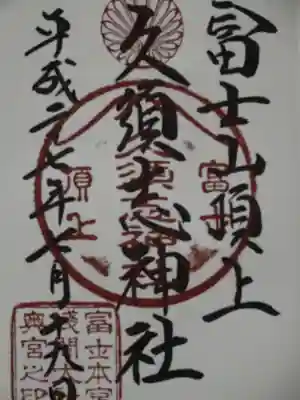 冨士山頂上
久須志神社
平成二七年七月十八日
富士
頂上
富士本宮
淺間大
奥宮之印